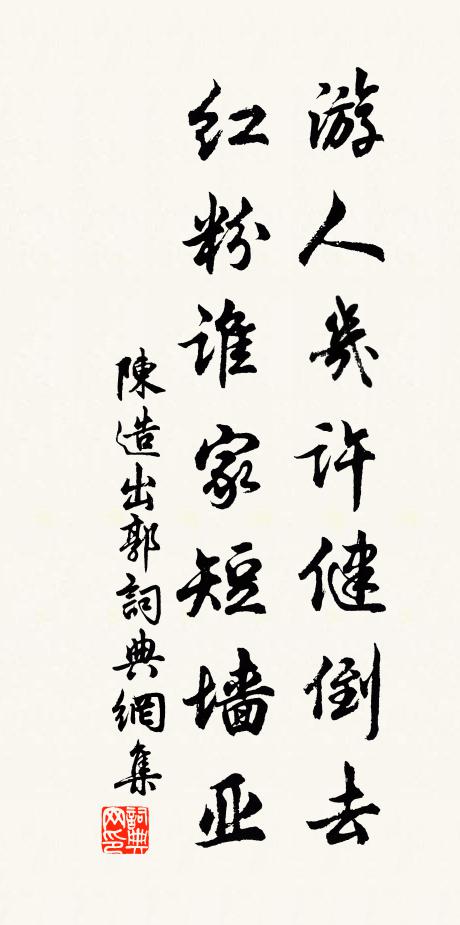 游人幾许健倒去
红粉谁家短墙亚
陳造出郭詞典網集
詞典网印